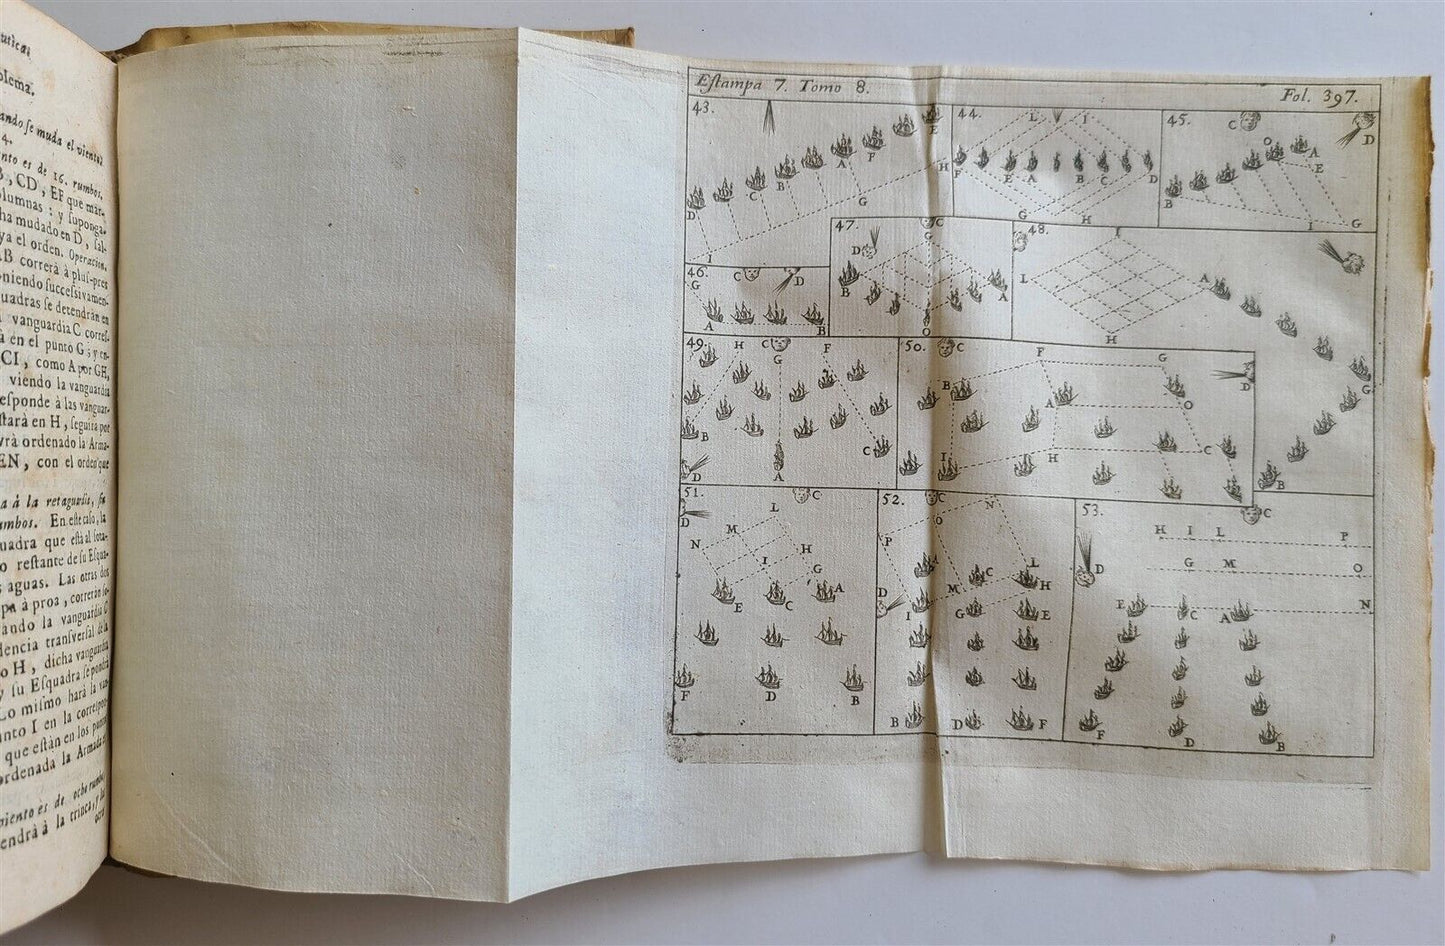 utica;
blema.
ando ſe muda el viento
4.
nto es de 16. rumbos,
B, CD, EF que mar-
olumnas: y ſuponga-
ha mudado en D, ſal-
ya el orden. Operacion.
AB correrà à pluſ-pres
oniendo ſucceſsivamen-
quadras ſe detendràn en
vanguardia C correſ-
à en el punto G; y en-
CI, como A por GH,
viendo la vanguardia
eſponde à las vanguar-
ſtarà en H, ſeguirà por
vrà ordenado la Arma-
EN, con el orden que
a à la retaguardia, ſu
umbos. En eſte caſo, la
uadra que eſtà al ſota-
o reſtante de ſu Eſqua-
s aguas. Las otras dos
pa à proa, correràn ſo-
ando la vanguardia C
dencia tranſverſal de la
o H, dicha vanguardia
y ſu Eſquadra ſe pondrà
Lo miſmo harà la van-
unto I en la correſpon-
que eſtàn en los puntos
ordenada la Armada en
viento es de ocho rumbos,
endrà à la trinca, y las
Eſtampa 7. Tomo 8.
Fol. 397.
43.
E
F
A
B
C
D
H
G
I
44.
L I
F E A B C D
G H
45.
C
D
O
A
E
B
I G
46.
C
D
G
A B
47.
C
G
D
B
A
O
48.
I
L
A
H
G
B
49.
H C F
G
B
C
D
A
50.
C
F G
D
B
A O
I H C
51.
C
D
L
M
N H
I G
A
E C
F D B
52.
C
N
O
P
A
C L
D M H
I G E
B D F
53.
C
H I L P
D G M O
E C A N
F D B